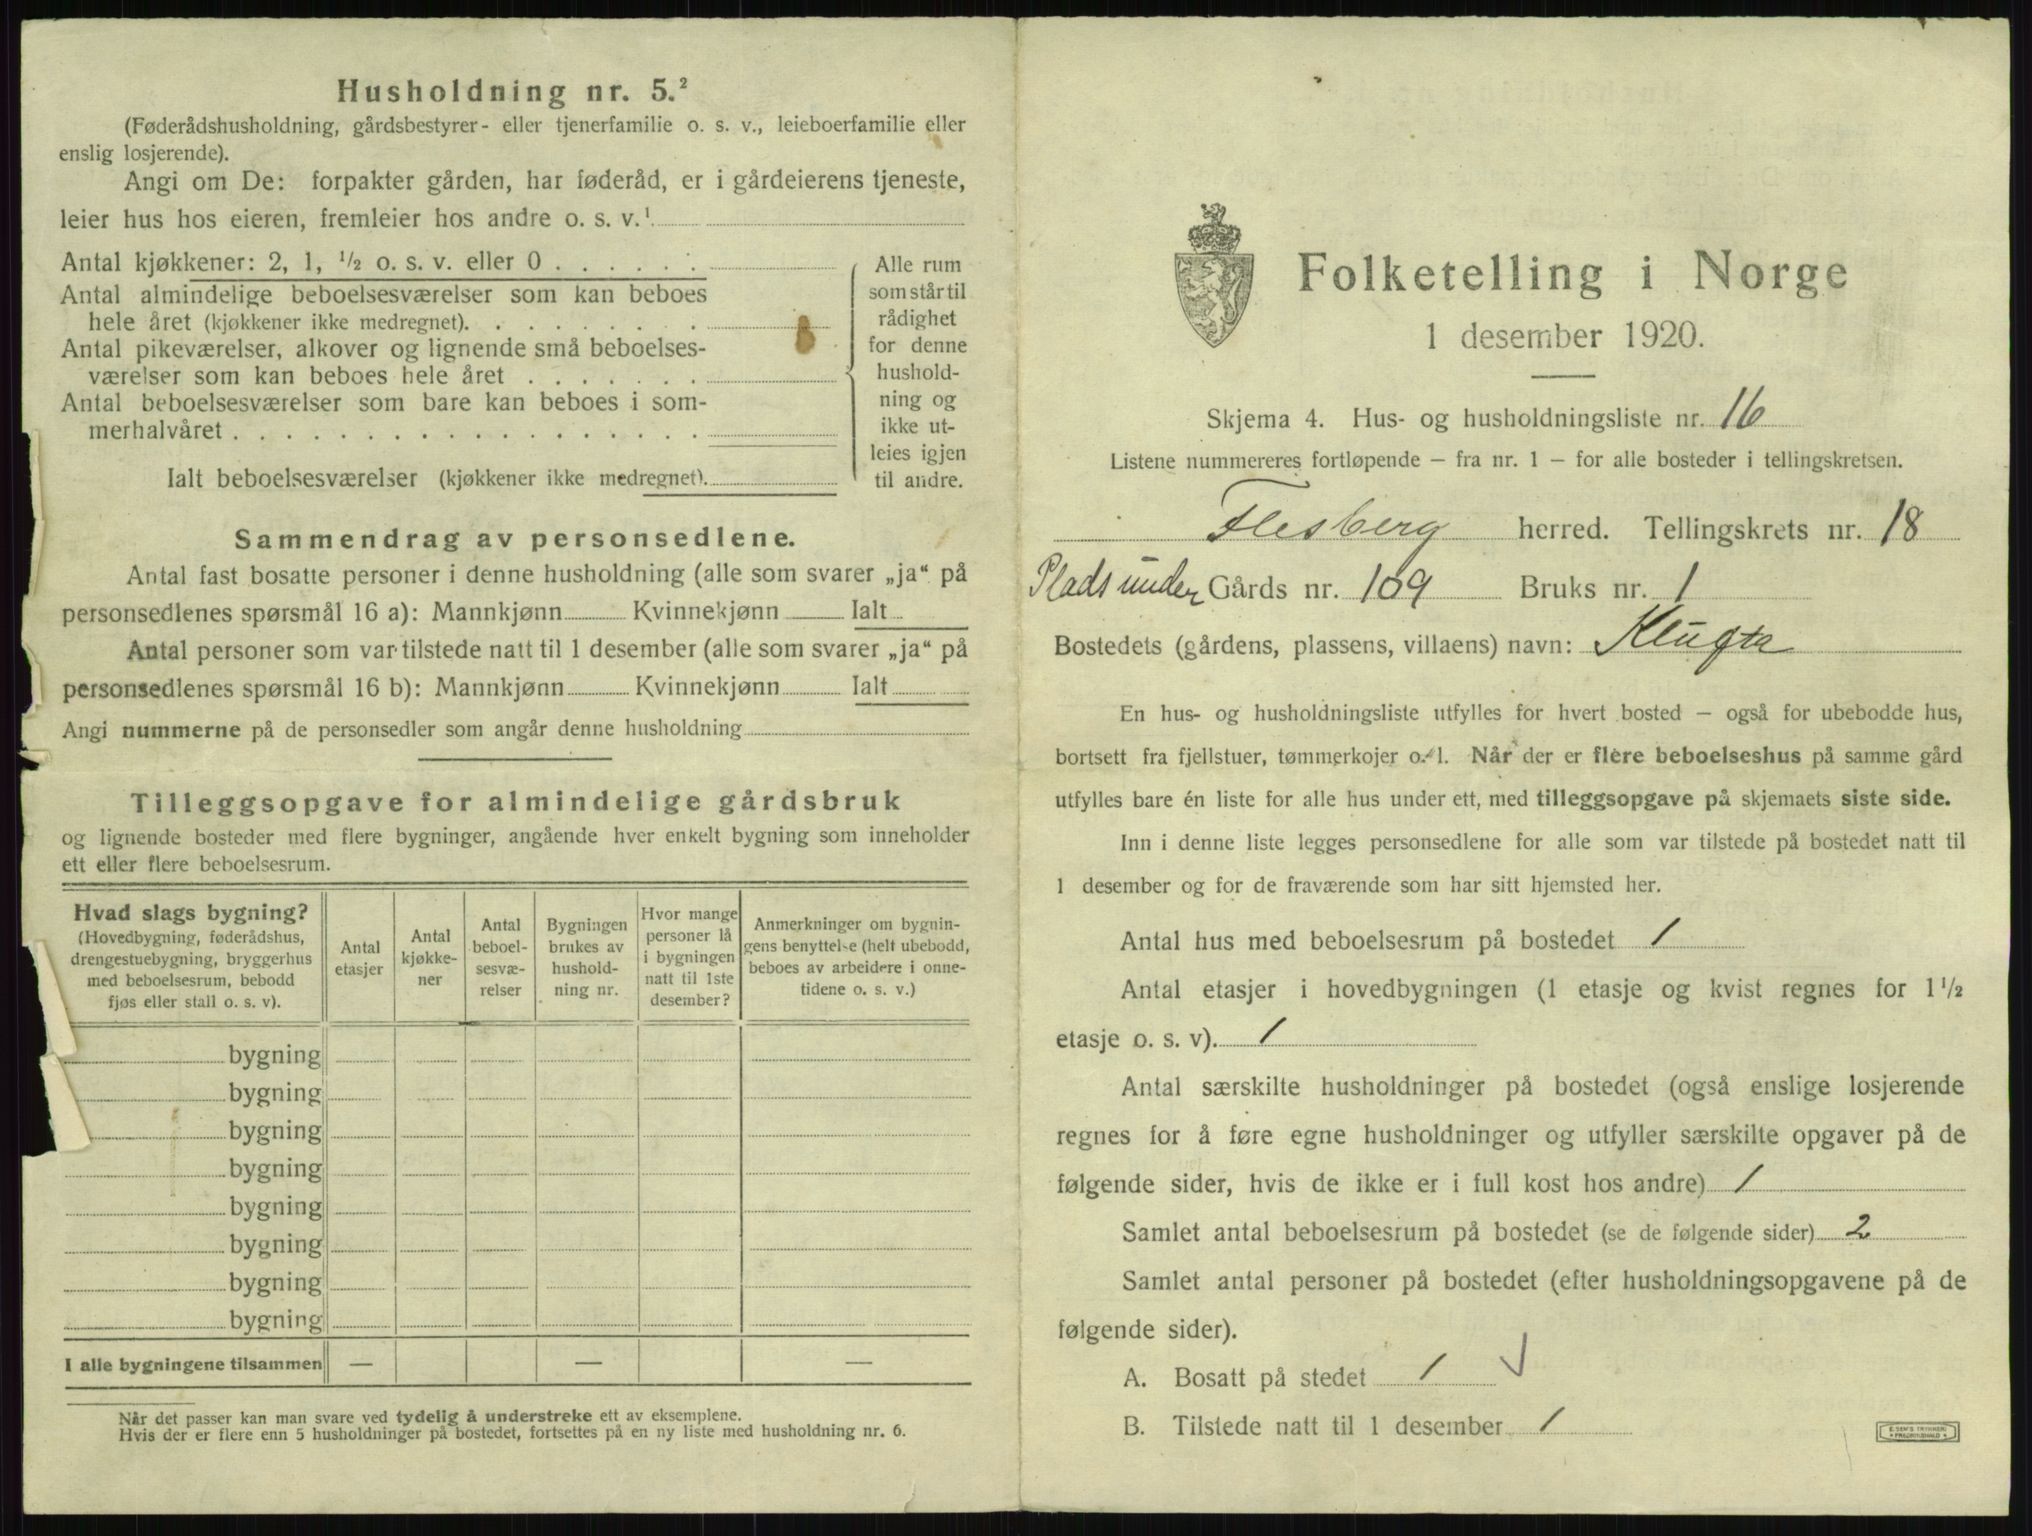 Husholdning nr. 5.²
(Føderådshusholdning, gårdsbestyrer- eller tjenerfamilie o. s. v., leieboerfamilie eller
enslig losjerende).
Angi om De: forpakter gården, har føderåd, er i gårdeierens tjeneste,
leier hus hos eieren, fremleier hos andre o. s. v.¹
Antal kjøkkener: 2, 1, ½ o. s. v. eller 0
Antal almindelige beboelsesværelser som kan beboes
hele året (kjøkkener ikke medregnet).
Antal pikeværelser, alkover og lignende små beboelses-
værelser som kan beboes hele året
Antal beboelsesværelser som bare kan beboes i som-
merhalvåret
Ialt beboelsesværelser (kjøkkener ikke medregnet).
Alle rum
som står til
rådighet
for denne
hushold-
ning og
ikke ut-
leies igjen
til andre.
Sammendrag av personsedlene.
Antal fast bosatte personer i denne husholdning (alle som svarer „ja“ på
personsedlenes spørsmål 16 a): Mannkjønn Kvinnekjønn Ialt
Antal personer som var tilstede natt til 1 desember (alle som svarer „ja“ på
personsedlenes spørsmål 16 b): Mannkjønn Kvinnekjønn Ialt
Angi nummerne på de personsedler som angår denne husholdning
Tilleggsopgave for almindelige gårdsbruk
og lignende bosteder med flere bygninger, angående hver enkelt bygning som inneholder
ett eller flere beboelsesrum.
Hvad slags bygning?
(Hovedbygning, føderådshus,
drengestuebygning, bryggerhus
med beboelsesrum, bebodd
fjøs eller stall o. s. v).
Antal
etasjer
Antal
kjøkke-
ner
Antal
beboel-
sesvæ-
relser
Bygningen
brukes av
hushold-
ning nr.
Hvor mange
personer lå
i bygningen
natt til 1ste
desember?
Anmerkninger om bygnin-
gens benyttelse (helt ubebodd,
beboes av arbeidere i onne-
tidene o. s. v.)
bygning
bygning
bygning
bygning
bygning
bygning
bygning
bygning
I alle bygningene tilsammen — — —
Når det passer kan man svare ved tydelig å understreke ett av eksemplene.
Hvis der er flere enn 5 husholdninger på bostedet, fortsettes på en ny liste med husholdning nr. 6.
Folketelling i Norge
1 desember 1920.
Skjema 4. Hus- og husholdningsliste nr. 16
Listene nummereres fortløpende – fra nr. 1 – for alle bosteder i tellingskretsen.
Flesberg herred. Tellingskrets nr. 18
Plads under Gårds nr. 109 Bruks nr. 1
Bostedets (gårdens, plassens, villaens) navn:
En hus- og husholdningsliste utfylles for hvert bosted – også for ubebodde hus,
bortsett fra fjellstuer, tømmerkojer o. l. Når der er flere beboelseshus på samme gård
utfylles bare én liste for alle hus under ett, med tilleggsopgave på skjemaets siste side.
Inn i denne liste legges personsedlene for alle som var tilstede på bostedet natt til
1 desember og for de fraværende som har sitt hjemsted her.
Antal hus med beboelsesrum på bostedet 1
Antal etasjer i hovedbygningen (1 etasje og kvist regnes for 1½
etasje o. s. v). 1
Antal særskilte husholdninger på bostedet (også enslige losjerende
regnes for å føre egne husholdninger og utfyller særskilte opgaver på de
følgende sider, hvis de ikke er i full kost hos andre) 1
Samlet antal beboelsesrum på bostedet (se de følgende sider) 2
Samlet antal personer på bostedet (efter husholdningsopgavene på de
følgende sider).
A. Bosatt på stedet 1
B. Tilstede natt til 1 desember 1